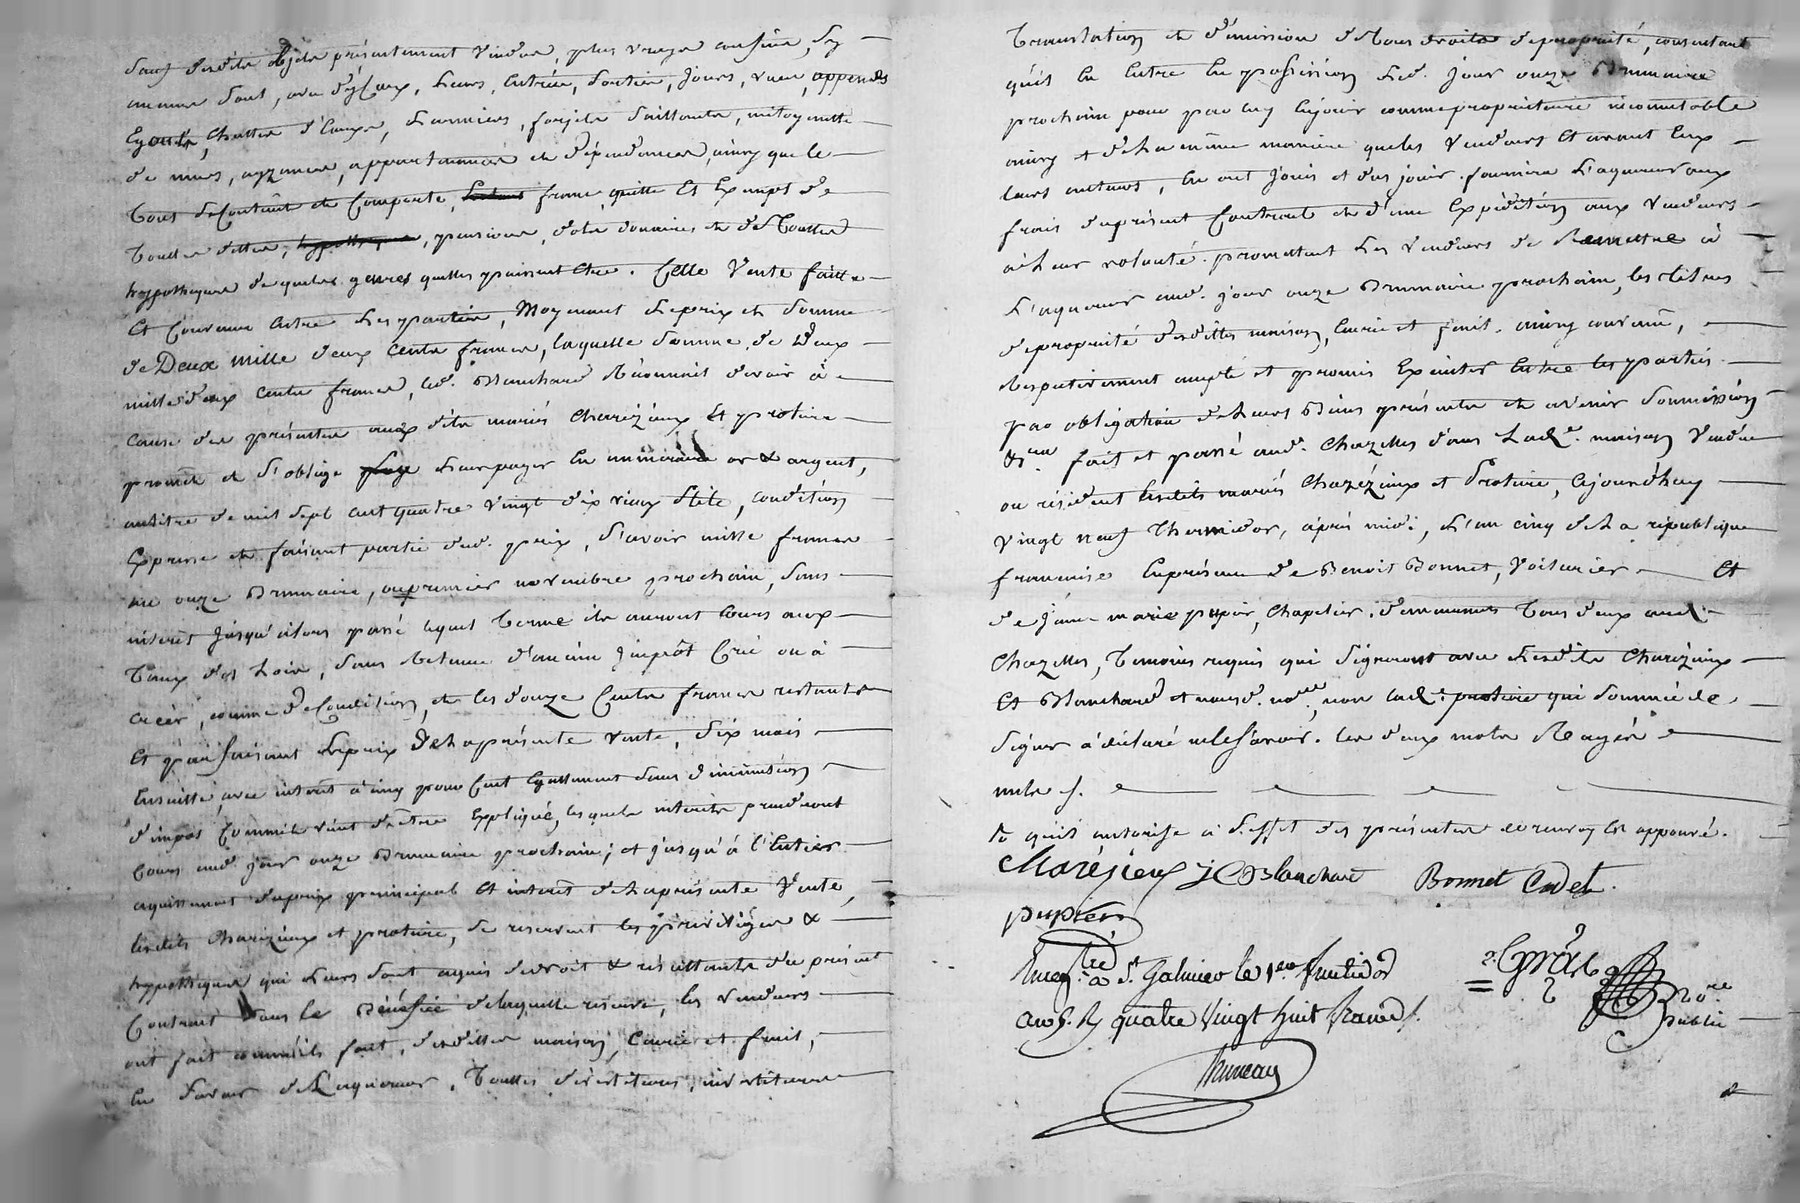 desdits objets présentement vendus, plus vraye
comme dont, avec leurs, entrées, sorties, jours, vues, appends
egouts, chuttes d'eaux, larmiers, forjets saillants, mitoyenetté
de murs, ayzances, appartenances et dépendances, ainsy que le
tout se contient et comporte, franc, quitte et exempt de
touttes dettes, hypotheques, pensions, et de touttes
hypotheques de quelq genres quelles puissent etre. Cette vente faitte
et convenue entre les parties, moyenant le prix et somme
de Deux mille deux cents francs, laquelle somme de deux
mille deux cents francs, led. Blanchard devoir à
cause des présentes auxdits mariés Charézieux et protiere
promet et s'oblige payer en numéraire or & argent,
au titre de mil sept cent quatre vingt dix vieux stile, condition
expresse et faisant partie dud. prix, sçavoir mille francs
au onze Brumaire, ou premier novembre prochain, sans
interet jusqu'alors passé lequel terme ils auront cours aux
taux des Loix, sans retenue d'aucun impôt créé ou à
créer, comme de condition, et les douze cents francs restants
et parfaisant le prix de la présente vente, six mois
ensuitte, avec interet à cinq pour cent egallement sans diminution
d'impos comme vient detre expliqué, lesquels interets prendront
cours aud. jour onze Brumaire prochain; et jusqu'à l'entier
aquittement du prix principal et interet de la présente vente,
lesdits Charézieux et protiere, se reservent les privilèges &
hypotheques qui leurs sont aquis de droit & résultants du présent
Contrat sous le Bénéfice de laquelle reserve, les vendeurs
ont fait comme ils font, desdittes maison, Ecurie et fenil,
en faveur de L'aquereur. Touttes dévestitures, investitures
translation et démission de tous droits de propriété, consentant
qu'il en entre en possession led. jour onze Brumaire
prochain pour par luy en jouir comme propriétaire incomutable
ainsy et de la même maniere que les vendeurs et avant eux
leurs auteurs, en ont joui et du jouir. fournira L'aquereur aux
frais du présent Contrat et d'une Expédition aux vendeurs
à leur volonté. promettent les vendeurs de Remettre à
L'aquereur aud. jour onze Brumaire prochain, les titres
de propriété desdittes maison, Ecurie et fenil. ainsy convenu,
respectivement accepté et promis Exécuter Entre les parties
par obligation de leurs Biens présents et avenir soumission
fait et passé aud. Chazelles dans Lad. maison vendue
ou résident lesdits mariés Charézieux et Protiere, cejourd'huy
vingt neuf Thermidor, après midi, L'an cinq de La république
francaise En présence de Benoit Bonnet, Voiturier Et
de jean-marie pupier, Chapelier, demeurants tous deux aud.
Chazelles, temoins requis qui signeront avec Lesdits Charézieux
et Blanchard et nous d. nore, non lad. protiere qui sommée de
signer à déclaré ne le sçavoir. les deux mots Rayés
nuls ./.
qu'il autorise à l'effet des présentes ce renvoy est approuvé.
Charézieux J C Blanchard Bonnet Cadet.
pupier
Enregtré à St Galmier le 1er fructidor
an 5. R quatre vingt huit francs /.
nore
public